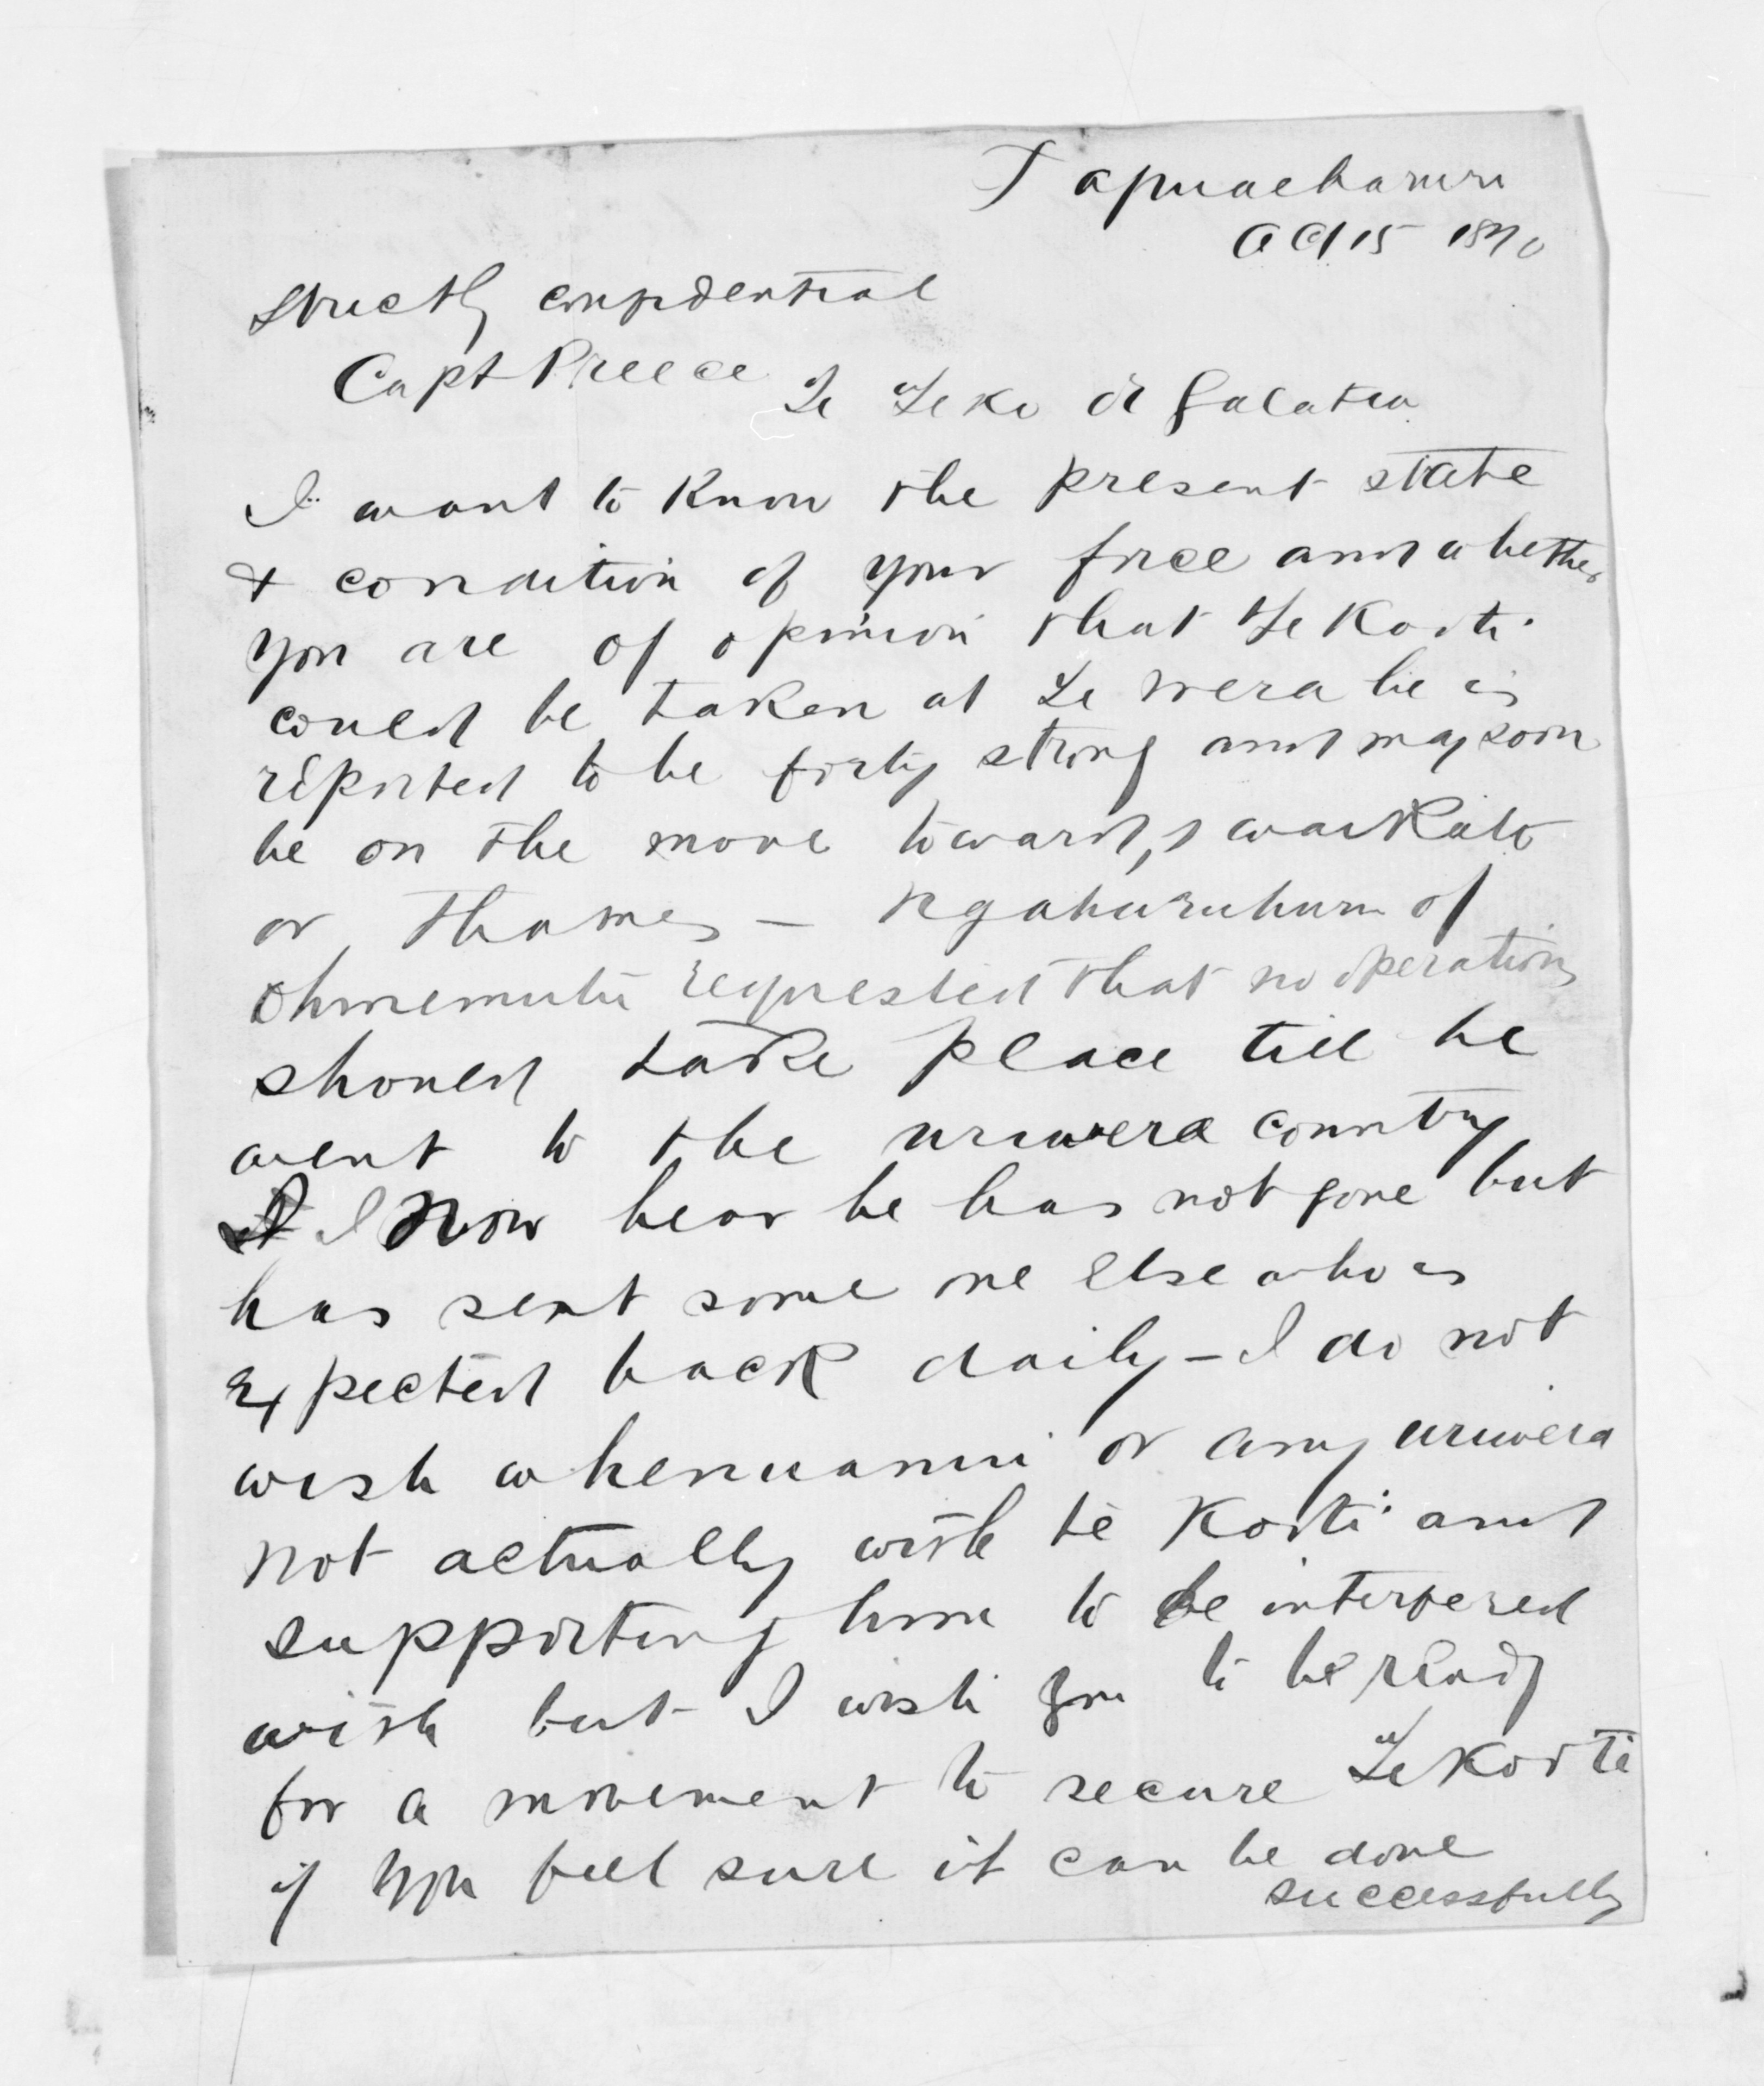 Tapuaeharuru
Oct 15 1870
Strictly confidential
Capt Preece Te Teko or Galatea
I want to know the present state
& condition of your force and whether
you are of opinion that Te Kooti
could be taken at Te Wera he is
reported to be forty strong and may soon
be on the move towards waikato
or Thames — Ngahuruhuru of
Ohinemutu requested that no operations
should take place till he
went to the uriwera country
I now hear he has not gone but
has sent some one else who is
expected back daily — I do not
wish whenuanui or any uriwera
not actually with te Kooti and
supporting him to be interfered
with but I wish you to be ready
for a movement to secure Te Kooti
if you feel sure it can be done
successfully